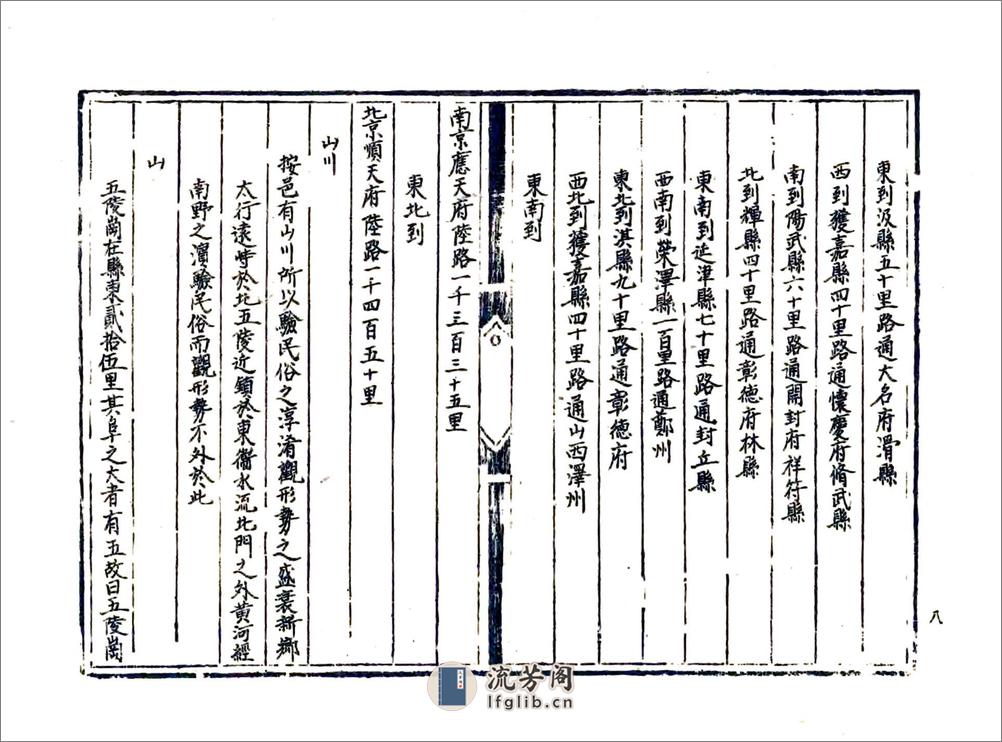 東到汲縣五十里路通大名府滑縣
西到獲嘉縣四十里路通懷慶府脩武縣
南到陽武縣六十里路通開封府祥符縣
北到輝縣四十里路通彰德府林縣
東南到延津縣七十里路通封丘縣
西南到榮澤縣一百里路通鄭州
東北到淇縣九十里路通彰德府
西北到獲嘉縣四十里路通山西澤州
東南到
南京應天府陸路一千三百三十五里
東北到
北京順天府陸路一千四百五十里
山川
按邑有山川所以驗民俗之淳淆觀形勢之盛衰新鄉
太行遠峙於北五陵近鎮於東衞水流北門之外黄河經
南野之濵驗民俗而觀形勢不外於此
山
五陵崗在縣東貳拾伍里其阜之大者有五故曰五陵崗
八
流芳阁
lfglib.cn